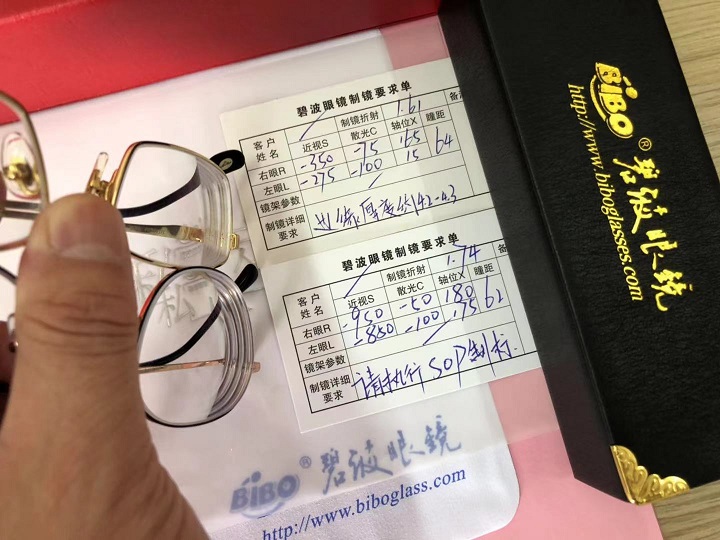 碧波眼镜制镜要求单
客户姓名 制镜折射 1.61 备
近视S 散光C 轴位X 瞳距
右眼R -350 -75 165 64
左眼L -275 -100 15
镜架参数
制镜详细要求 边缘厚度
碧波眼镜制镜要求单
客户姓名 制镜折射 1.74 备
近视S 散光C 轴位X 瞳距
右眼R -950 -50 180 62
左眼L -850 -100 175
镜架参数
制镜详细要求 请执行SOP制标
BiBO® 碧波眼镜
http://www.biboglass.com
BiBO® 碧波眼镜
http://www.biboglasses.com